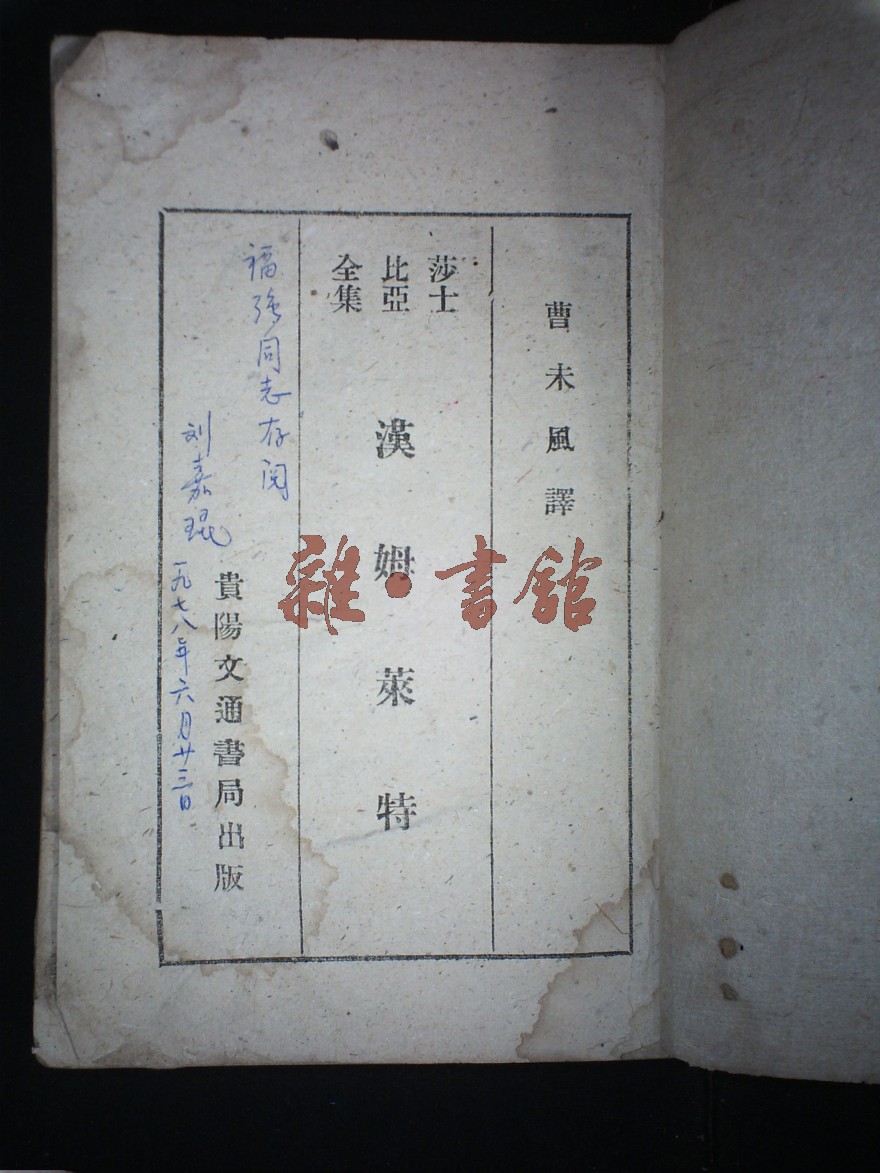 曹未風譯
莎士
比亞
全集
漢姆萊特
福强同志存阅
刘嘉琨
一九七八年六月廿三日
貴陽文通書局出版
雜·書館